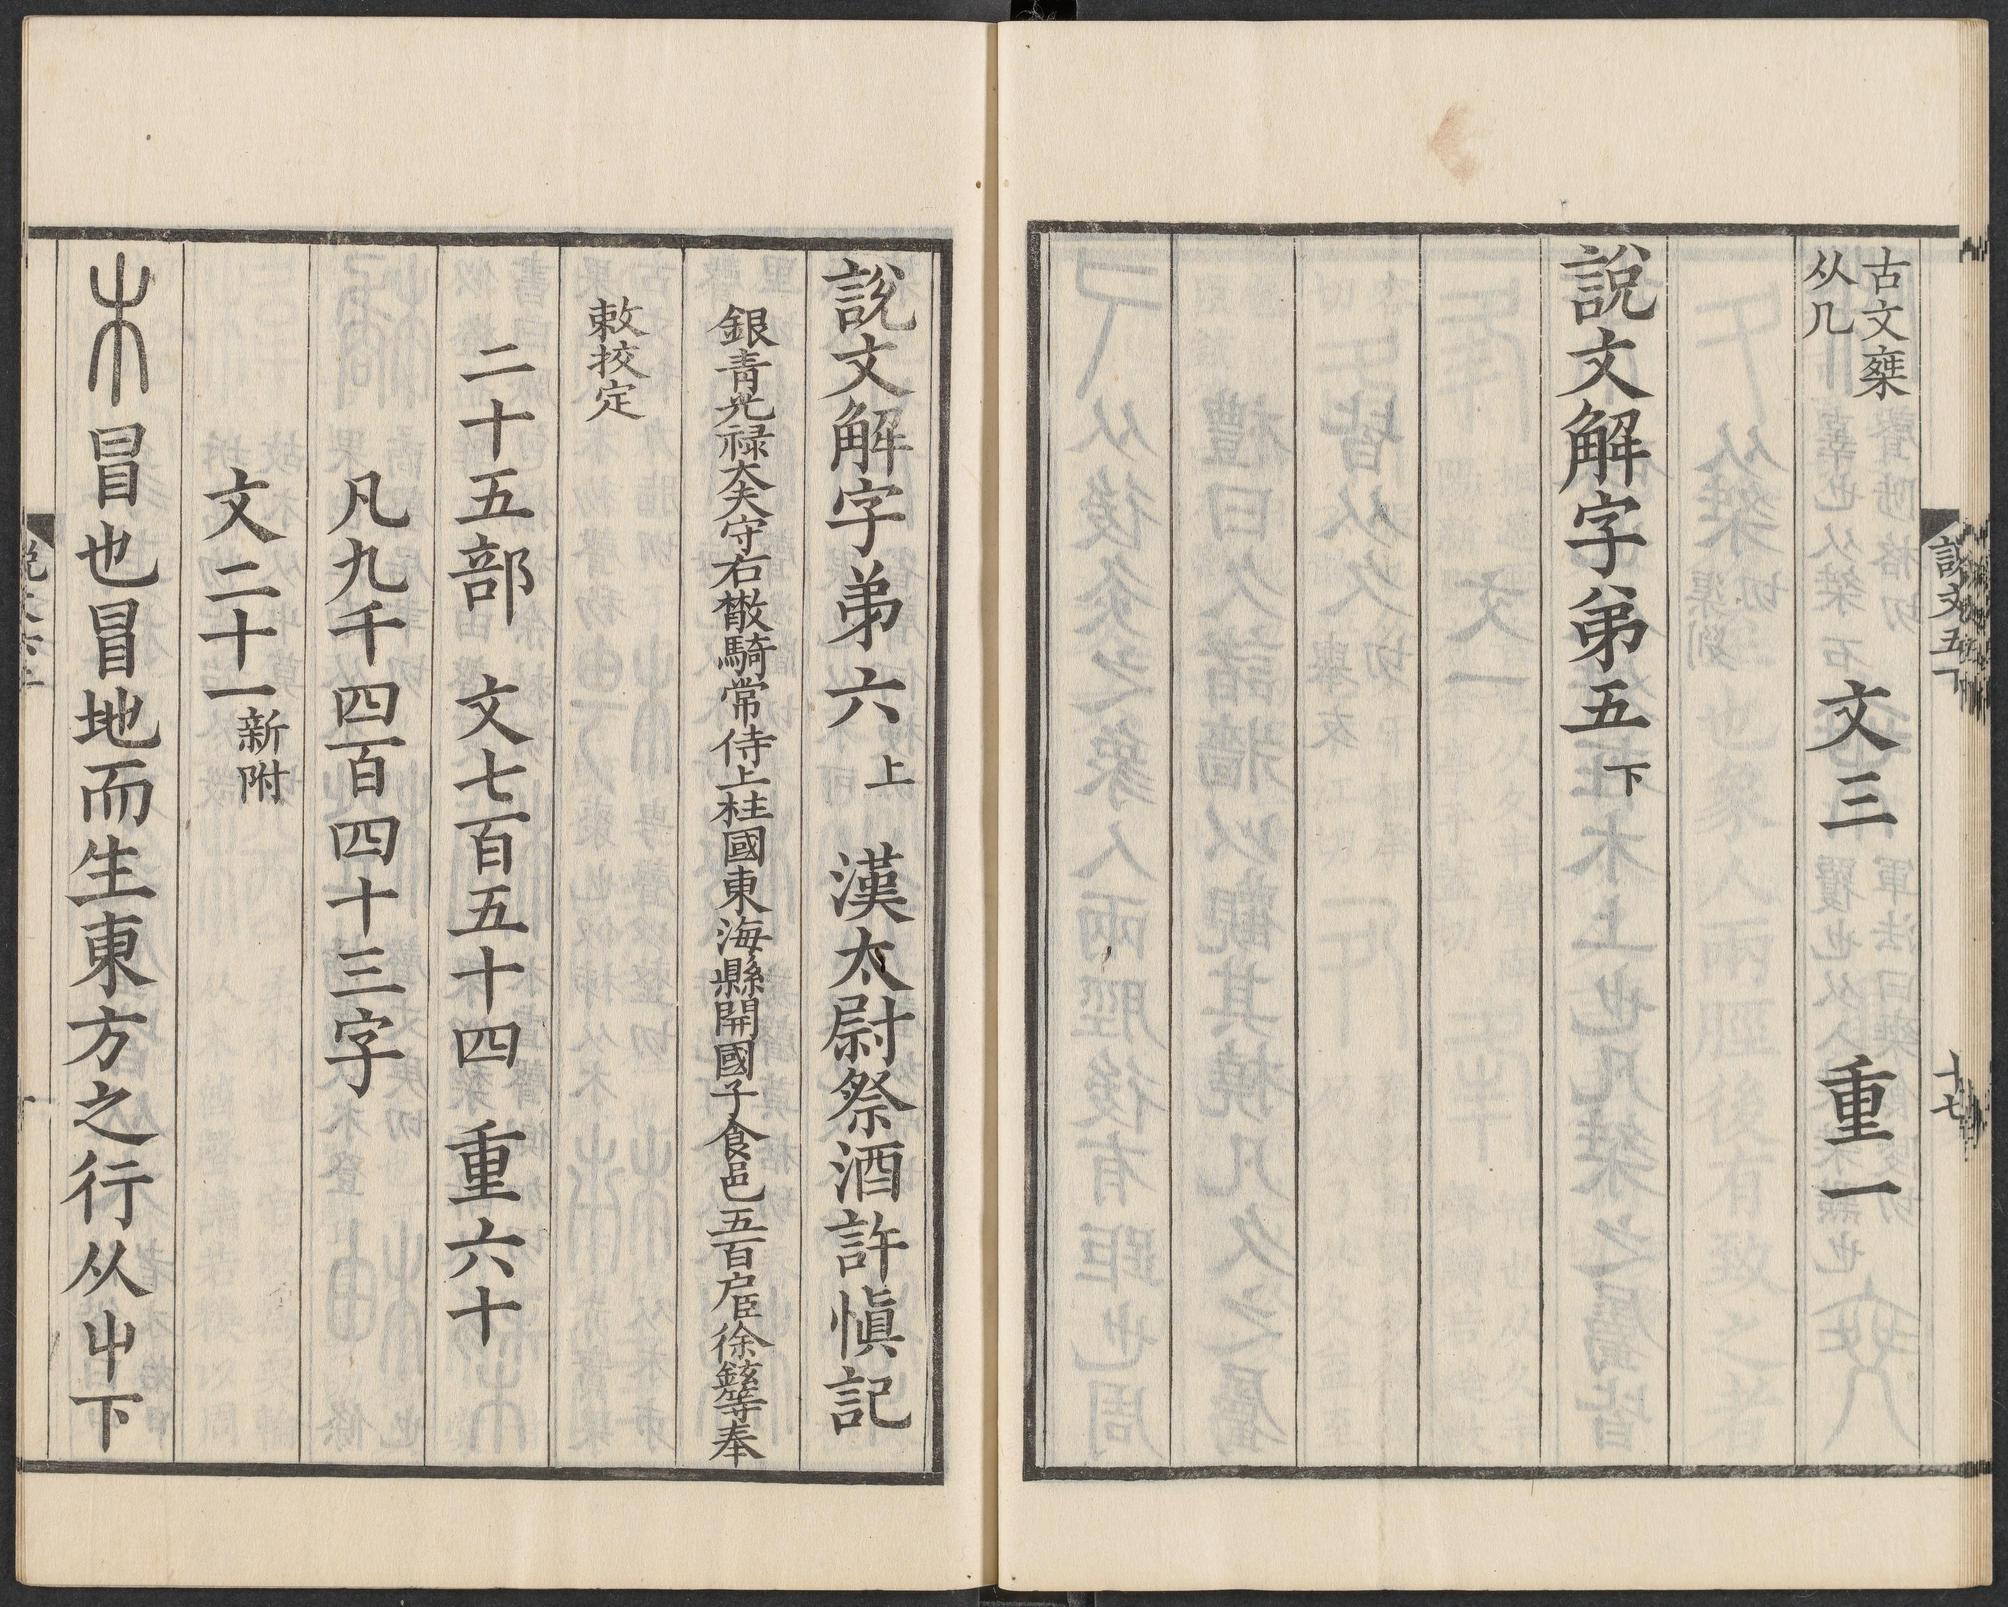 古文椉从几
文三　重一
說文解字弟五下
說文五下　十七
說文解字弟六上　漢太尉祭酒許愼記
銀青光祿大夫守右散騎常侍上柱國東海縣開國子食邑五百户臣徐鉉等奉
敕挍定
二十五部　文七百五十四　重六十
凡九千四百四十三字
文二十一新附
木　冒也冒地而生東方之行从屮下